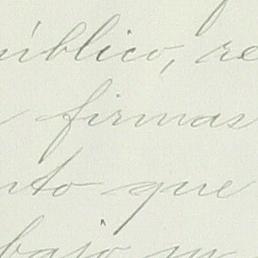 úblico, re
firmas
nto que
bajo su